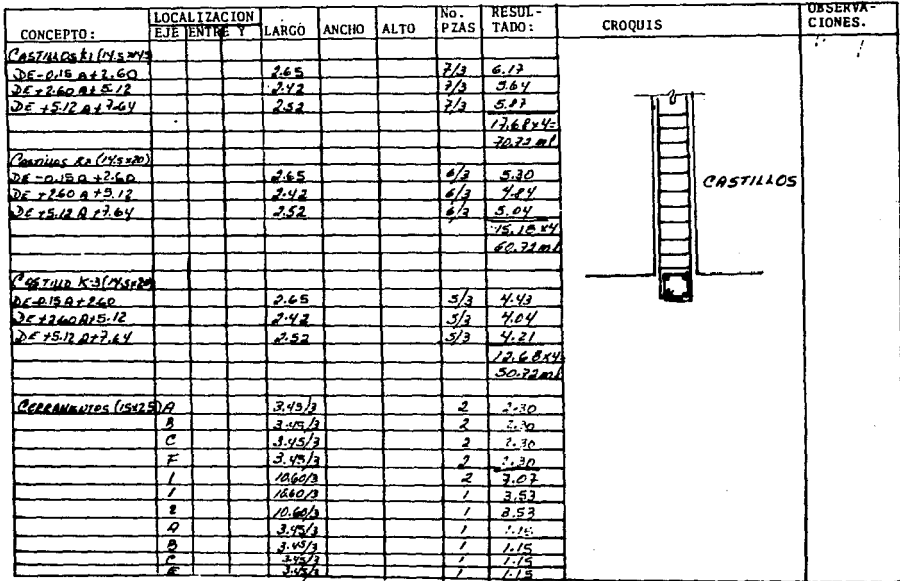 CONCEPTO: LOCALIZACION EJE ENTRE Y LARGO ANCHO ALTO No. PZAS RESUL-TADO: CROQUIS OBSERVA-CIONES.
CASTILLOS K1 (14.5x14.5
DE -0.15 A +2.60 2.65 7/3 6.17
DE +2.60 A +5.12 2.42 7/3 5.64
DE +5.12 A +7.64 2.52 7/3 5.87
17.68x4=
70.72 ml
CASTILLOS K2 (14.5x20)
DE -0.15 A +2.60 2.65 6/3 5.30
DE +2.60 A +5.12 2.42 6/3 4.84
DE +5.12 A +7.64 2.52 6/3 5.04
15.18 x4
60.72 ml
CASTILLO K-3 (14.5x20
DE -0.15 A +2.60 2.65 5/3 4.43
DE +2.60 A +5.12 2.42 5/3 4.04
DE +5.12 A +7.64 2.52 5/3 4.21
12.68x4
50.72 ml
CERRAMIENTOS (15x25) A 3.45/3 2 2.30
B 3.45/3 2 2.30
C 3.45/3 2 2.30
F 3.45/3 2 2.30
1 10.60/3 2 7.07
1 10.60/3 1 3.53
2 10.60/3 1 3.53
A 3.45/3 1 1.15
B 3.45/3 1 1.15
C 3.45/3 1 1.15
E 3.45/3 1 1.15
CASTILLOS